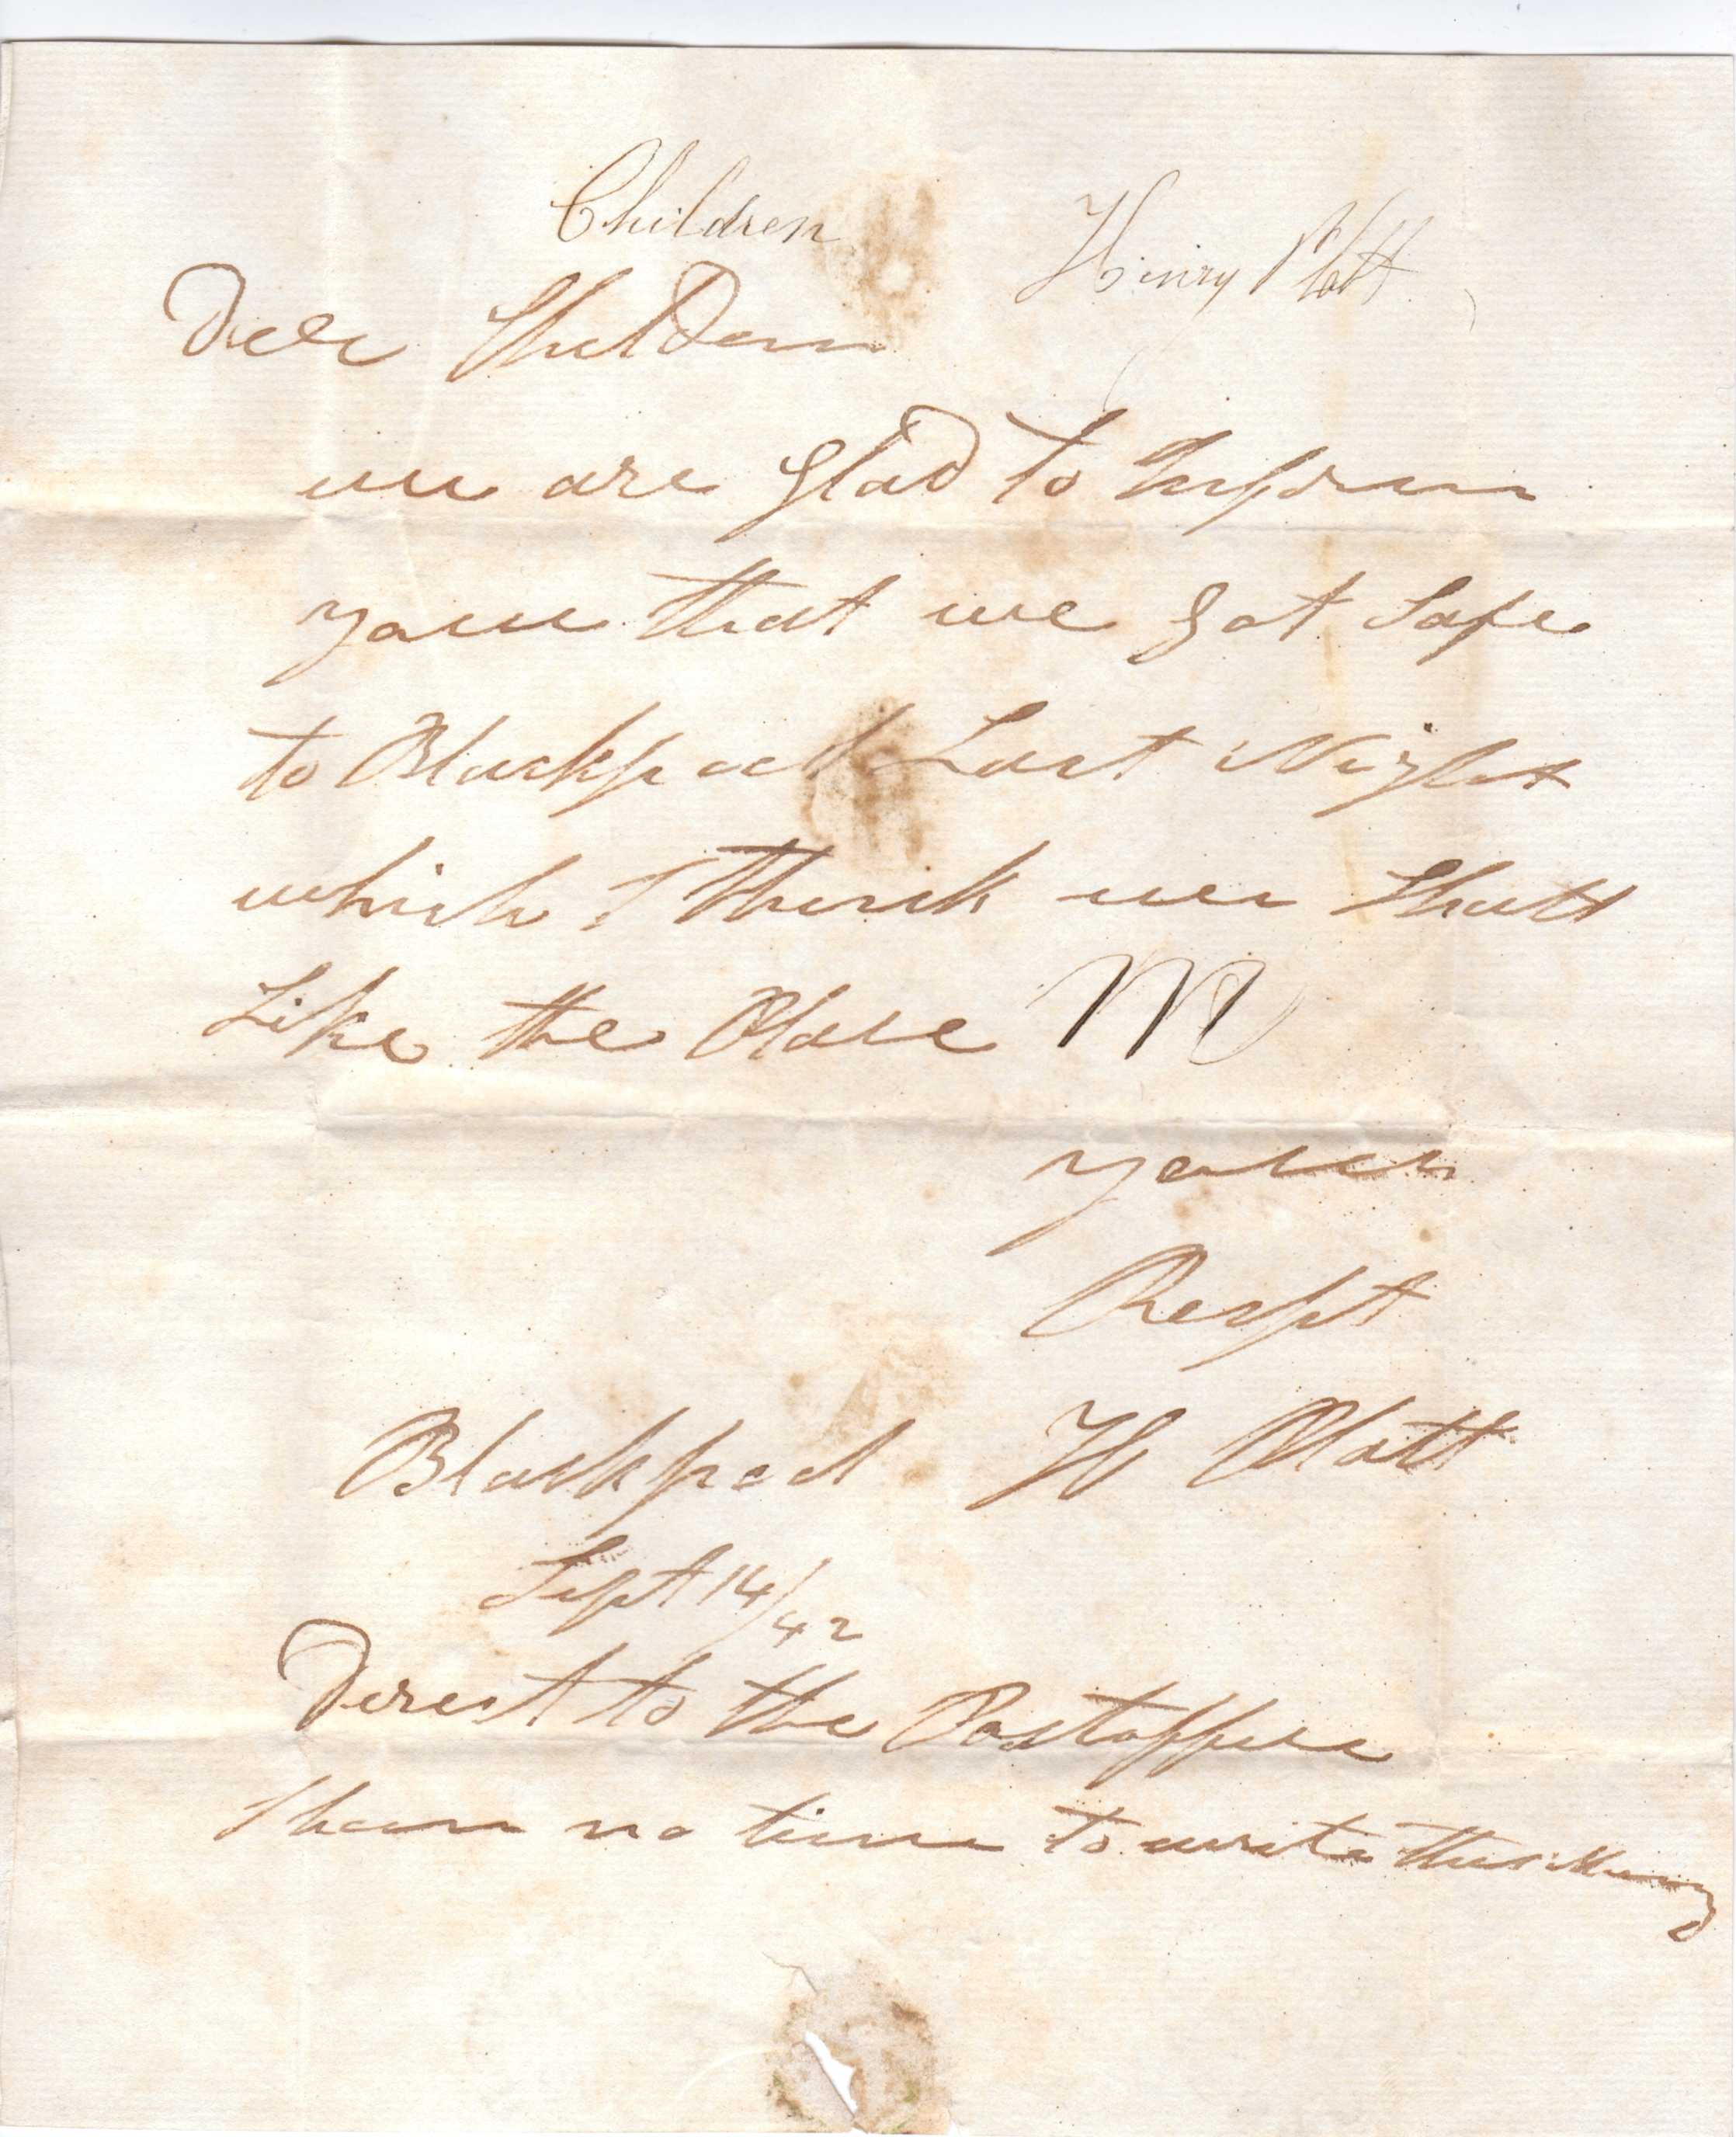 Children
Henry Platt
Deer Children
we are glad to Inform
you that we got Safe
to Blackpool Last Night
which I think we Shall
Like the Place
yours
Respt
Blackpool H Platt
Sept 14/42
Direct to the Postoffice
I have no time to write this